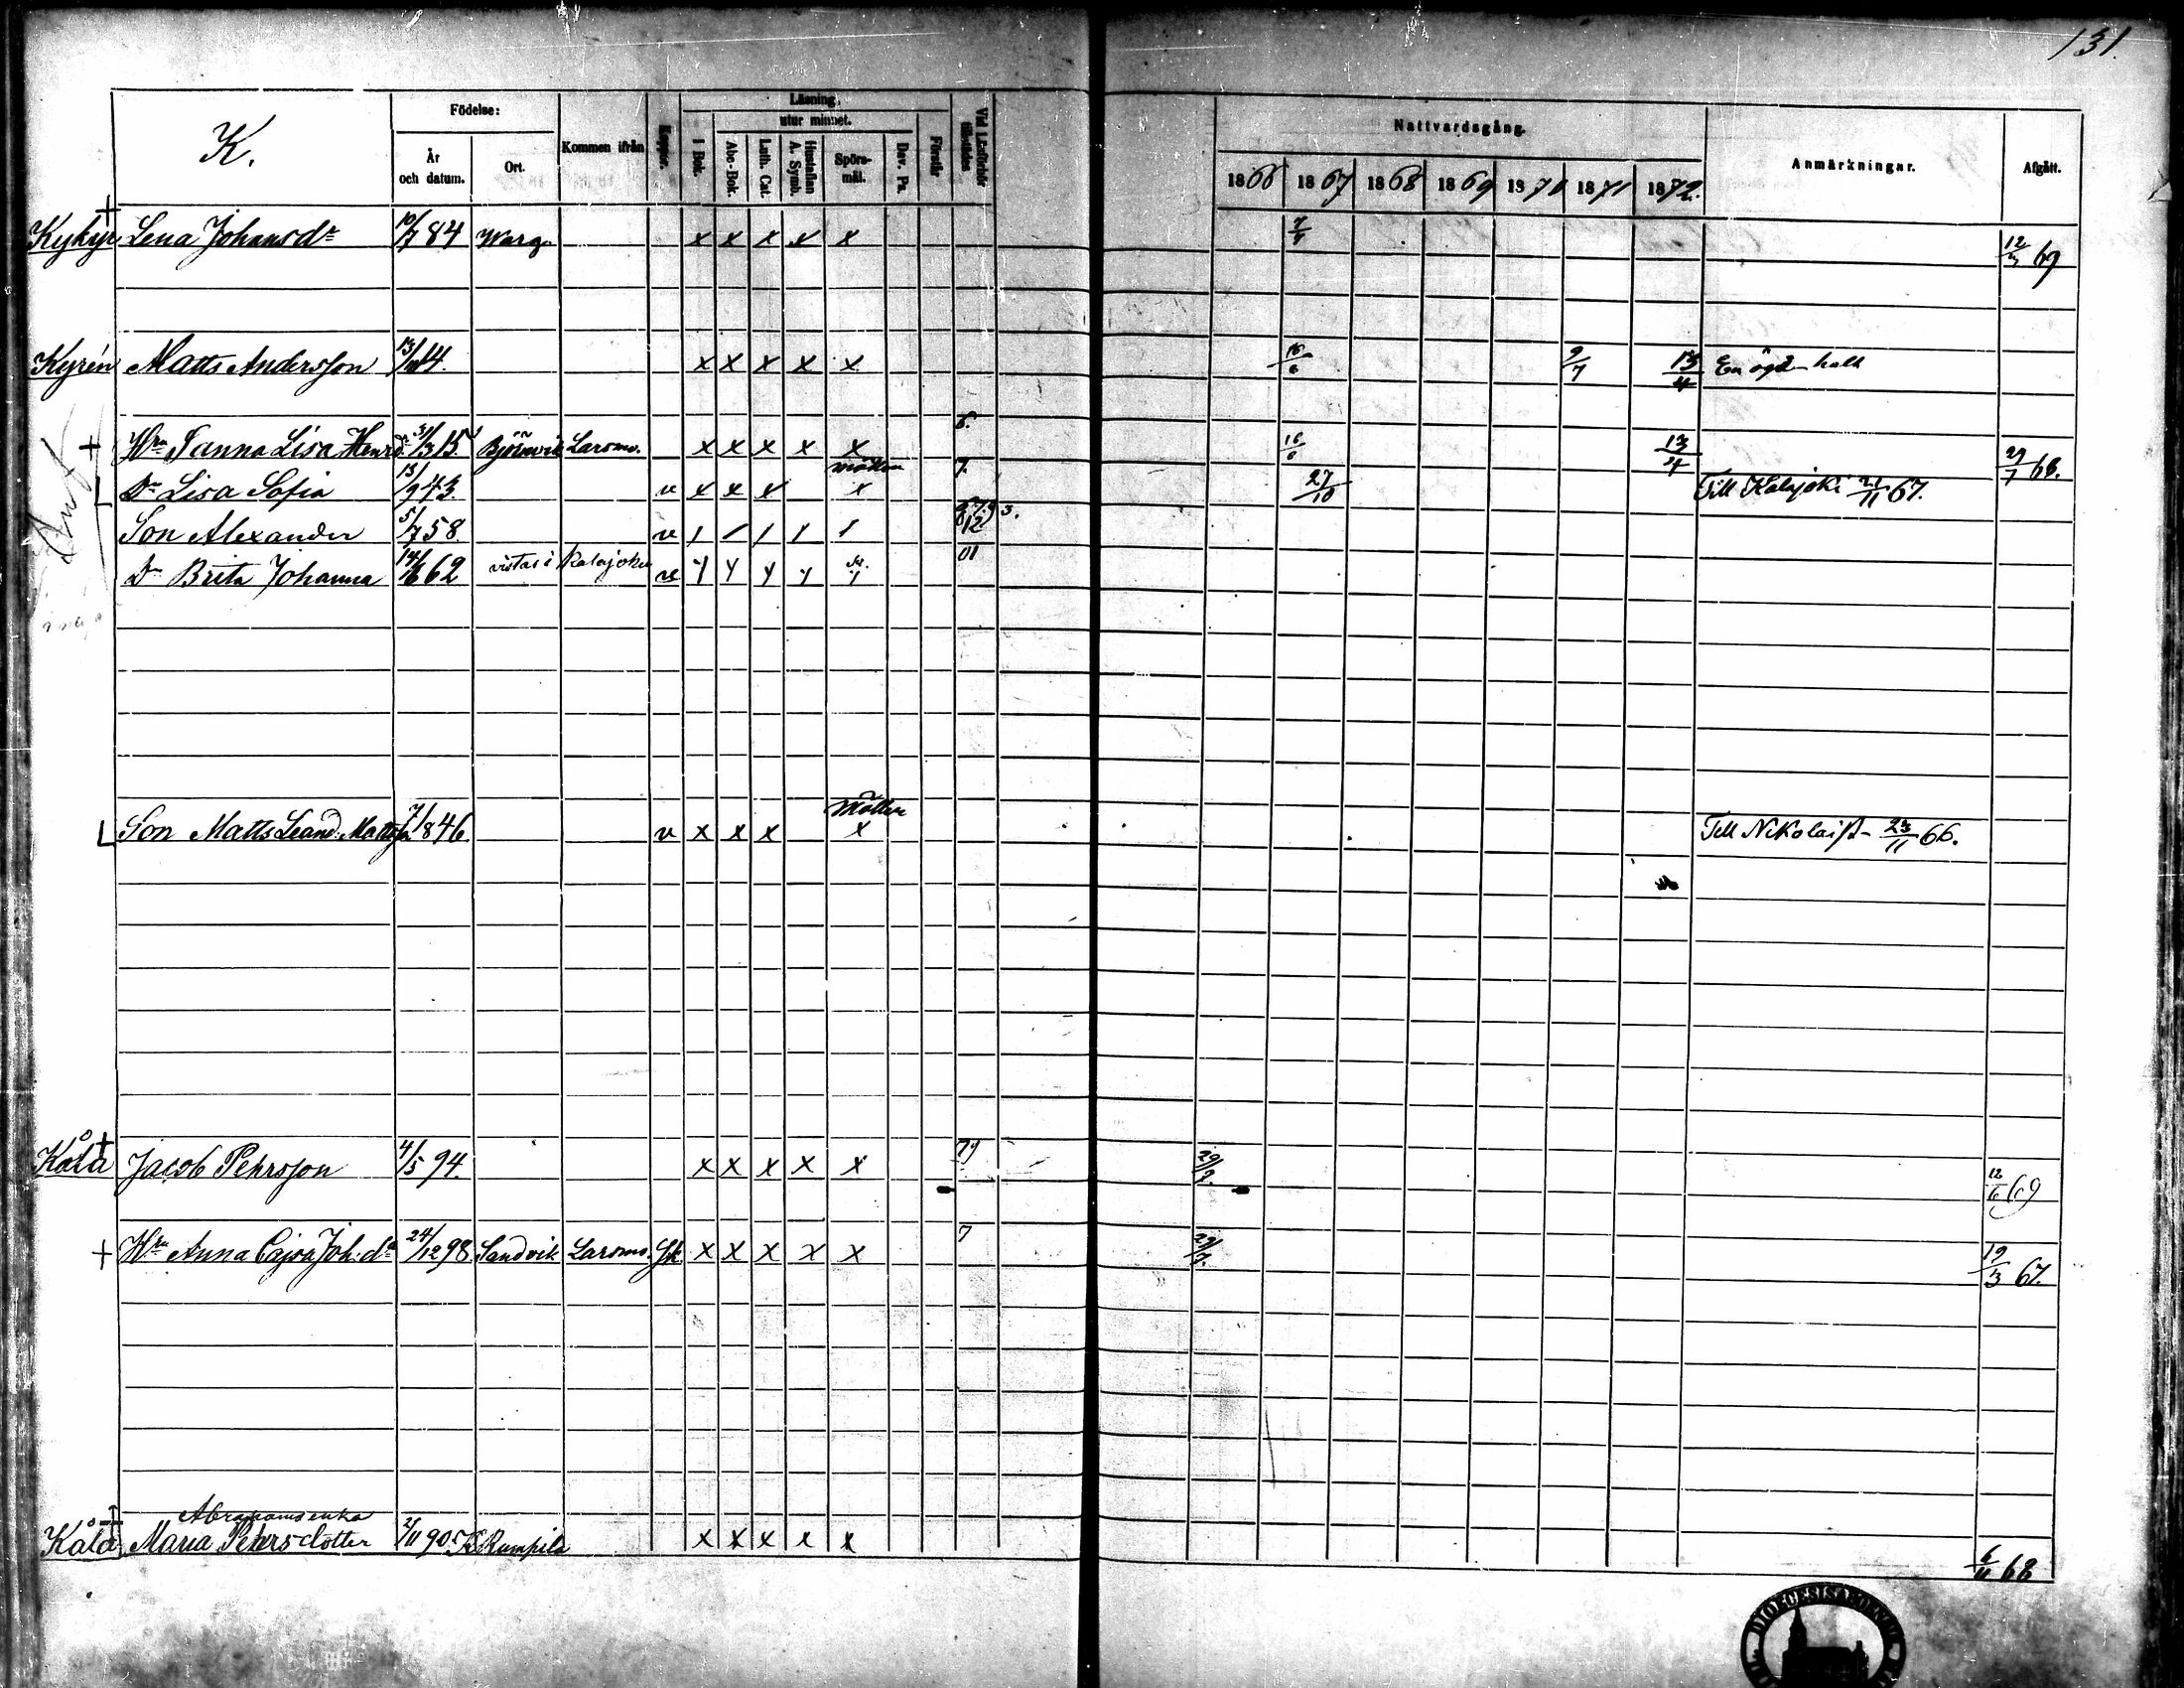 131.
K.
Födelse:
År och datum.
Ort.
Kommen ifrån
Koppor.
Läsning.
utur minnet.
I Bok.
Abc-Bok.
Luth. Cat.
Hustaflan A. Symb.
Spörsmål.
Dav. Ps.
Förstår
Vid Läsförhör tillstädes
Nattvardsgång.
1866 1867 1868 1869 1870 1871 1872.
Anmärkningar.
Afgått.
Kykyr Lena Johansdr 10/7 84 Warg. x x x x x 12/3 69
Kyrén Matts Andersson 14. x x x x x 16/6 9/7 13/4 En ögd halt
+ Hru Sanna Lisa Henrdr 31/3 15 Björnvik Larsmo. x x x x x 6. 16/6 13/4 29/7 68.
Dr Lisa Sofia 13/9 43. v x x x x 7. 27/10 Till Kalajoki 21/11 67.
Son Alexander 5/7 58. v
Dr Brita Johanna 62 vistas i Kalajoki v
Son Matts Leand. Mattss. 46. v x x x x Till Nikolaist. 23/11 66.
Kålå + Jacob Pehrsson 4/5 94. x x x x x 12/6 69
+ Hru Anna Cajsa Joh.dr 24/12 98. Sandvik Larsmo. x x x x x 7 29/7. 19/3 67.
Abrahams enka
Kålå Maria Petersdotter 2/11 90. K. Rumpila x x x x x 6/11 68
DIOECESIS ABOENSIS